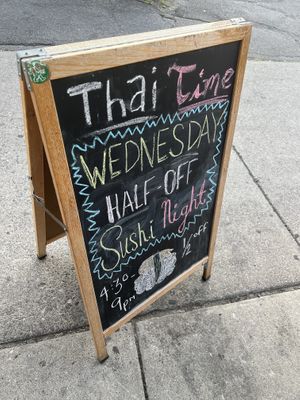 Thai Time
WEDNESDAY
HALF-OFF
Sushi Night
4:30-
9pm
1/2 off